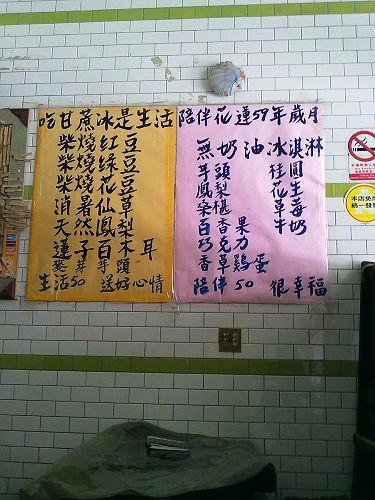 吃甘蔗冰是生活
柴燒紅豆
柴燒綠豆
柴燒花豆
消暑仙草
天然鳳梨
蓮子百木耳
麥芽芋頭
生活50 送好心情
陪伴花蓮59年歲月
無奶油冰淇淋
芋頭 桂圓
鳳梨 花生
桑椹 草莓
百香果 牛奶
巧克力
香草雞蛋
陪伴50 很幸福
本店免
統一發